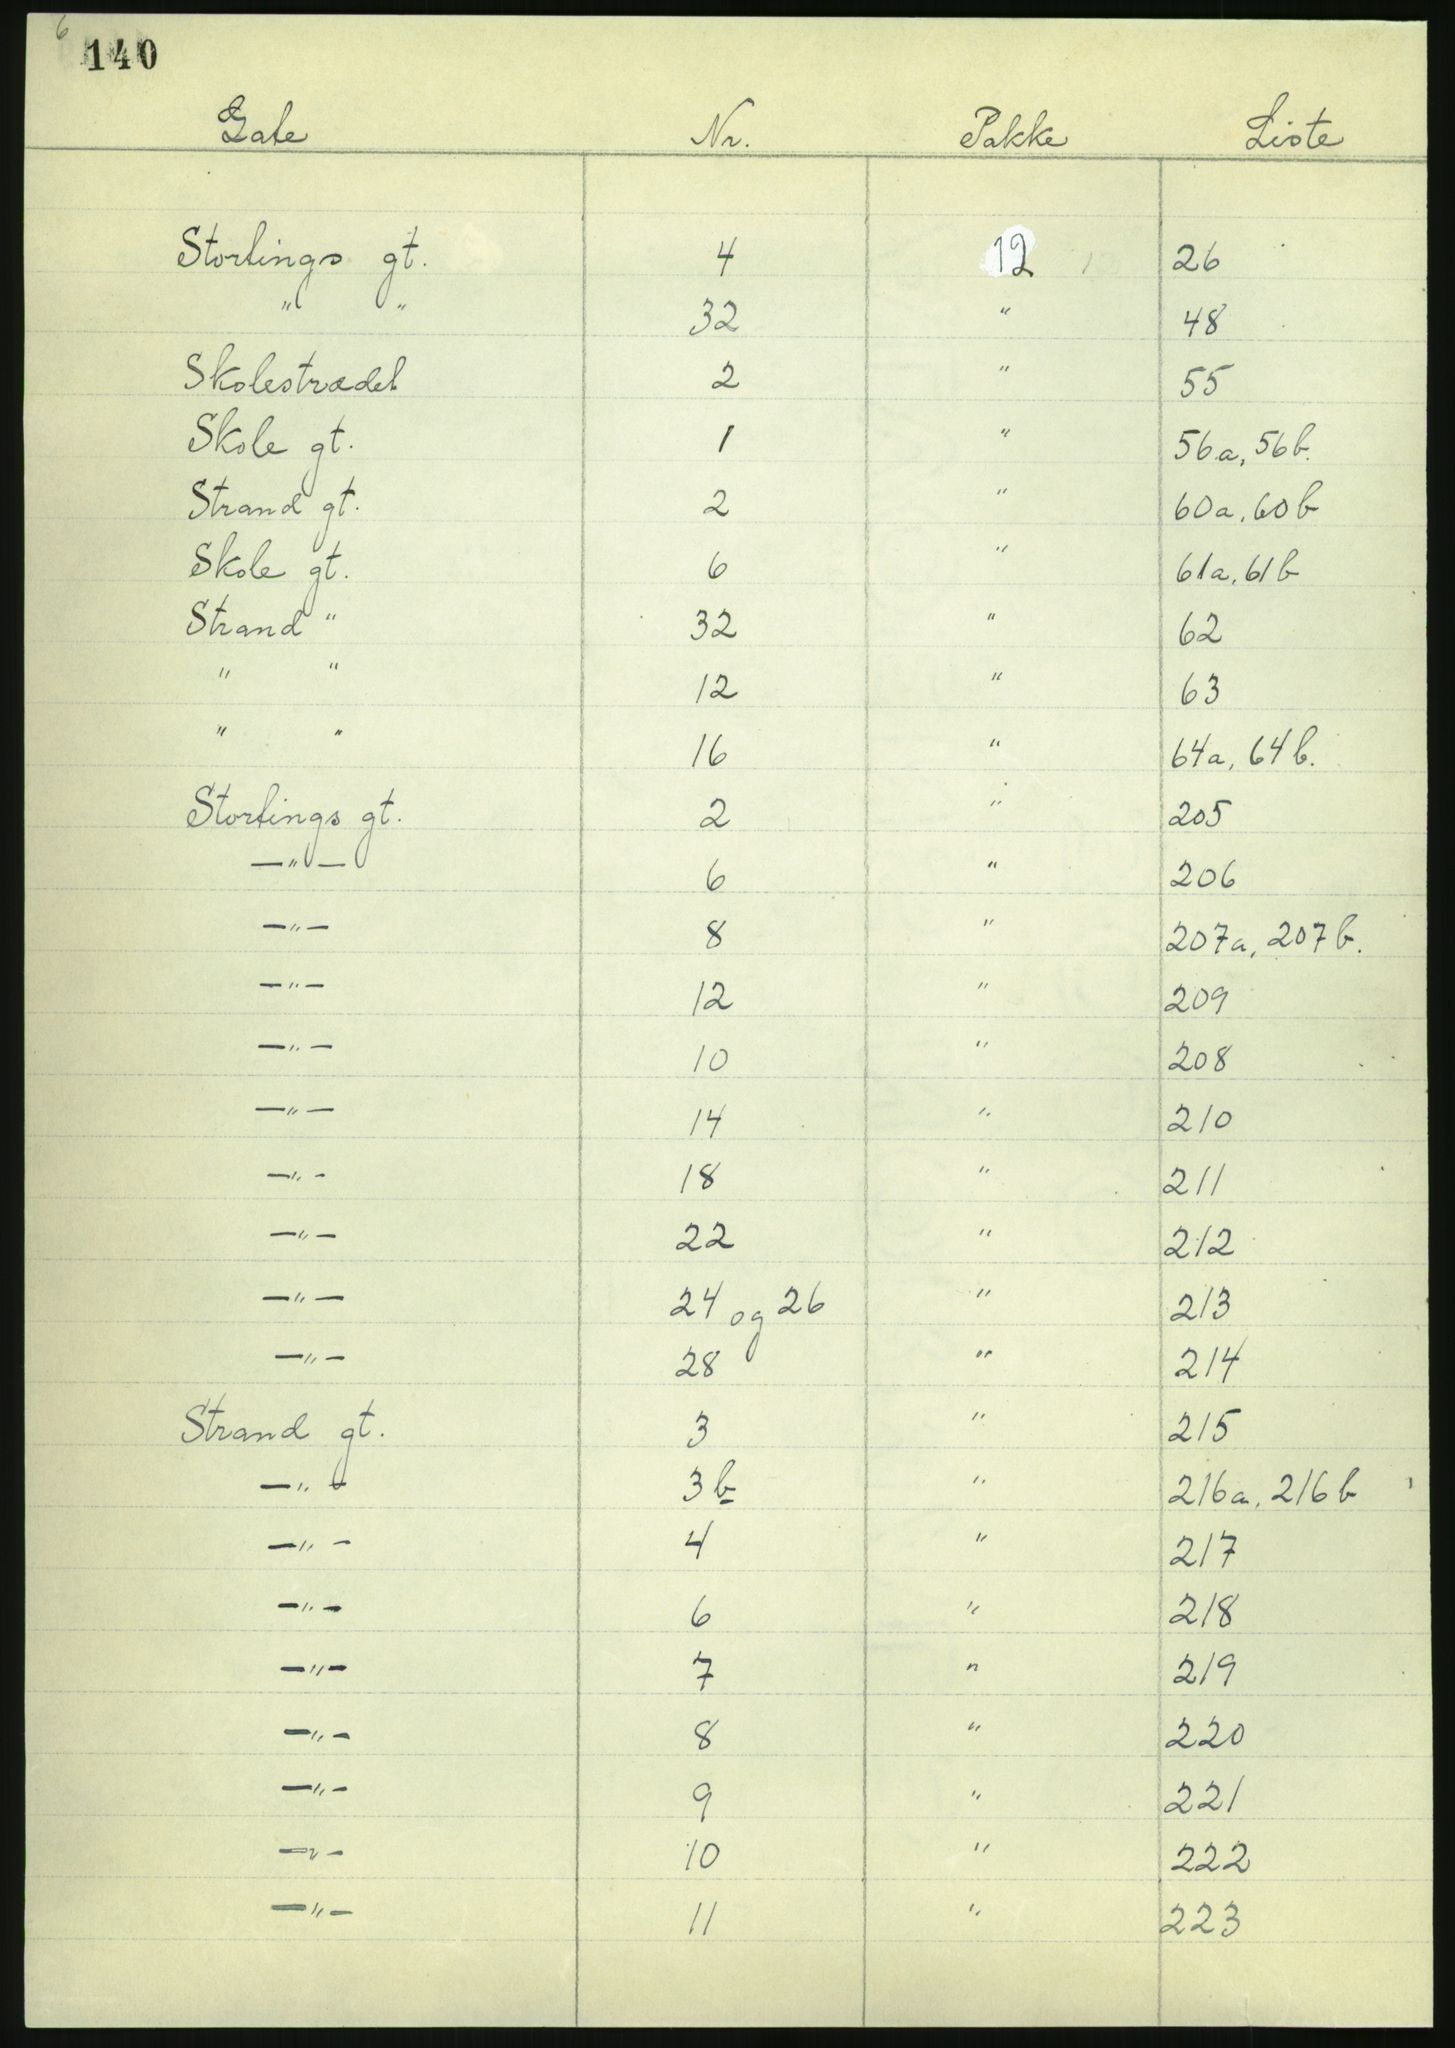 6
140
Gate Nr. Pakke Liste
Stortings gt. 4 12 26
" " 32 " 48
Skolestrædet 2 " 55
Skole gt. 1 " 56a, 56b.
Strand gt. 2 " 60a, 60b
Skole gt. 6 " 61a, 61b
Strand " 32 " 62
" " 12 " 63
" " 16 " 64a, 64b.
Stortings gt. 2 " 205
—"— 6 " 206
—"— 8 " 207a, 207b.
—"— 12 " 209
—"— 10 " 208
—"— 14 " 210
—"— 18 " 211
—"— 22 " 212
—"— 24 og 26 " 213
—"— 28 " 214
Strand gt. 3 " 215
—"— 3b " 216a, 216b
—"— 4 " 217
—"— 6 " 218
—"— 7 " 219
—"— 8 " 220
—"— 9 " 221
—"— 10 " 222
—"— 11 " 223